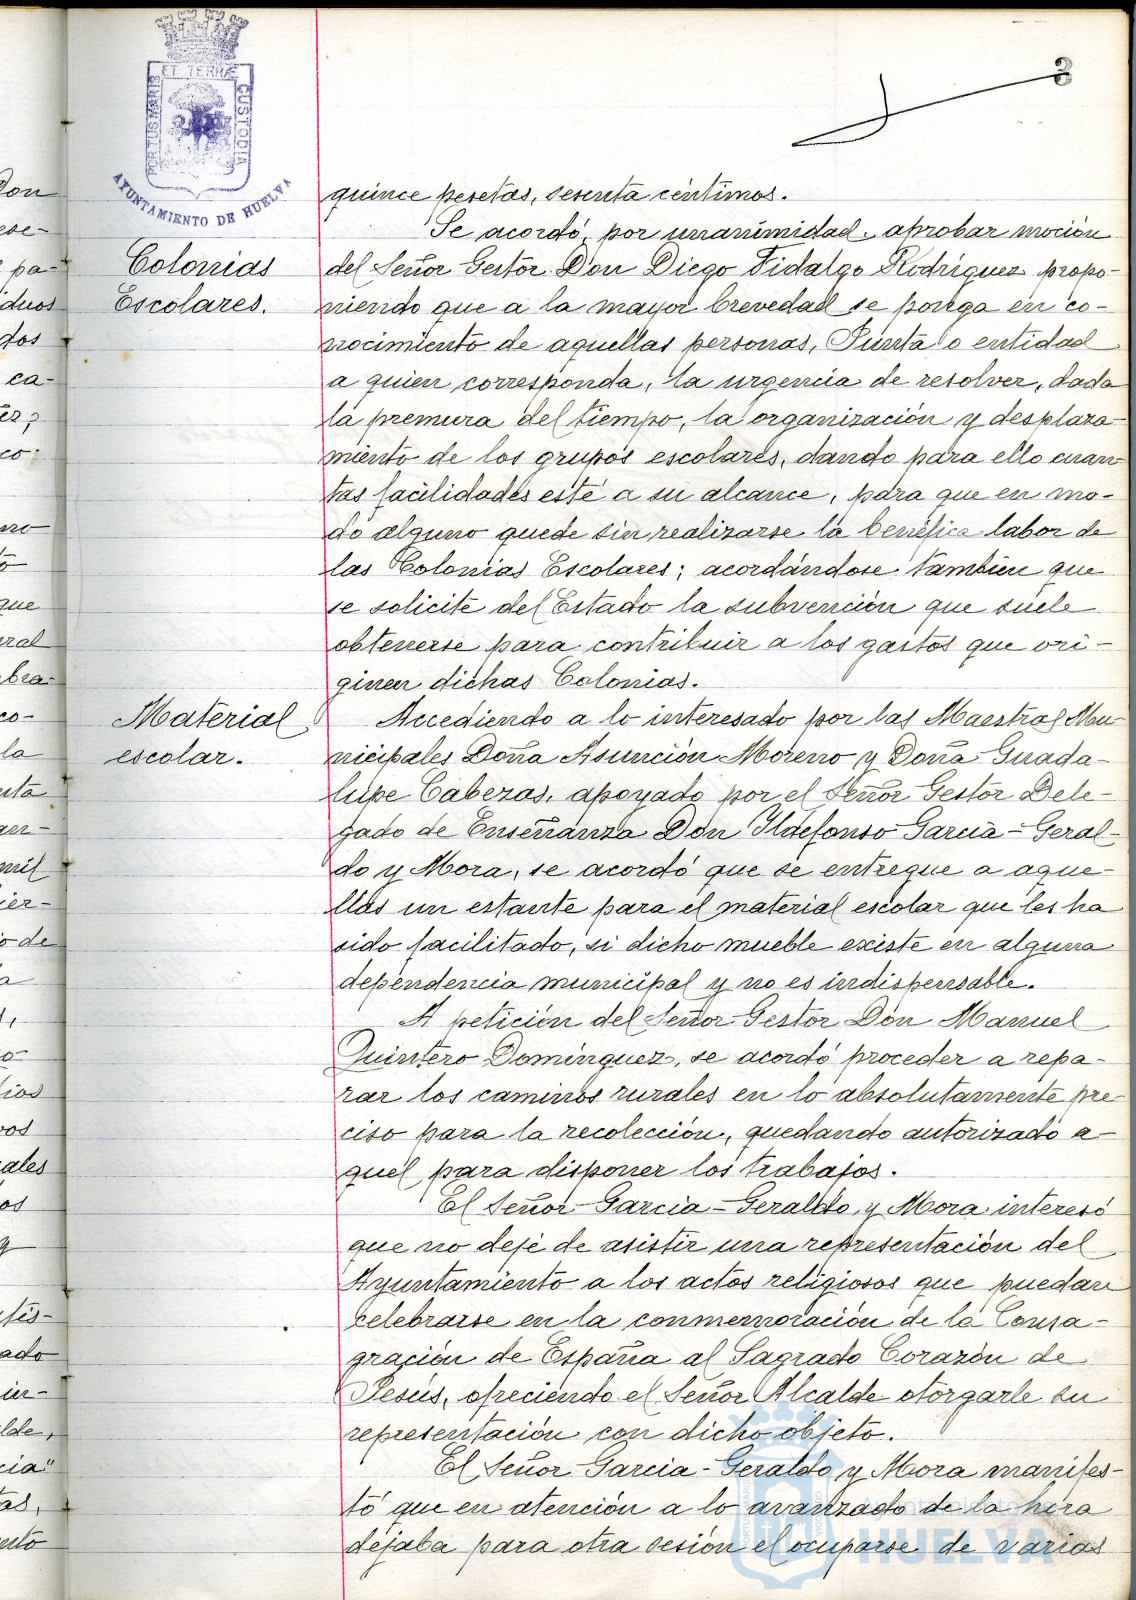 3
PORTUS MARIS ET TERRÆ CUSTODIA
AYUNTAMIENTO DE HUELVA
Colonias
Escolares.
Material
escolar.
quince pesetas, sesenta céntimos.
Se acordó por unanimidad aprobar moción
del Señor Gestor Don Diego Fidalgo Rodríguez propo-
niendo que a la mayor brevedad se ponga en co-
nocimiento de aquellas personas, Junta o entidad
a quien corresponda, la urgencia de resolver, dada
la premura del tiempo, la organización y desplaza-
miento de los grupos escolares, dando para ello cuan-
tas facilidades esté a su alcance, para que en mo-
do alguno quede sin realizarse la benéfica labor de
las Colonias Escolares; acordándose también que
se solicite del Estado la subvención que suele
obtenerse para contribuir a los gastos que ori-
ginen dichas Colonias.
Accediendo a lo interesado por las Maestras Mu-
nicipales Doña Asunción Moreno y Doña Guada-
lupe Cabezas, apoyado por el Señor Gestor Dele-
gado de Enseñanza Don Ildefonso García-Geral-
do y Mora, se acordó que se entregue a aque-
llas un estante para el material escolar que les ha
sido facilitado, si dicho mueble existe en alguna
dependencia municipal y no es indispensable.
A petición del Señor Gestor Don Manuel
Quintero Domínguez, se acordó proceder a repa-
rar los caminos rurales en lo absolutamente pre-
ciso para la recolección, quedando autorizado a-
quel para disponer los trabajos.
El Señor García-Geraldo y Mora interesó
que no deje de asistir una representación del
Ayuntamiento a los actos religiosos que puedan
celebrarse en la conmemoración de la Consa-
gración de España al Sagrado Corazón de
Jesús, ofreciendo el Señor Alcalde otorgarle su
representación con dicho objeto.
El Señor García-Geraldo y Mora manifes-
tó que en atención a lo avanzado de la hora
dejaba para otra sesión el ocuparse de varias
Ayuntamiento
HUELVA